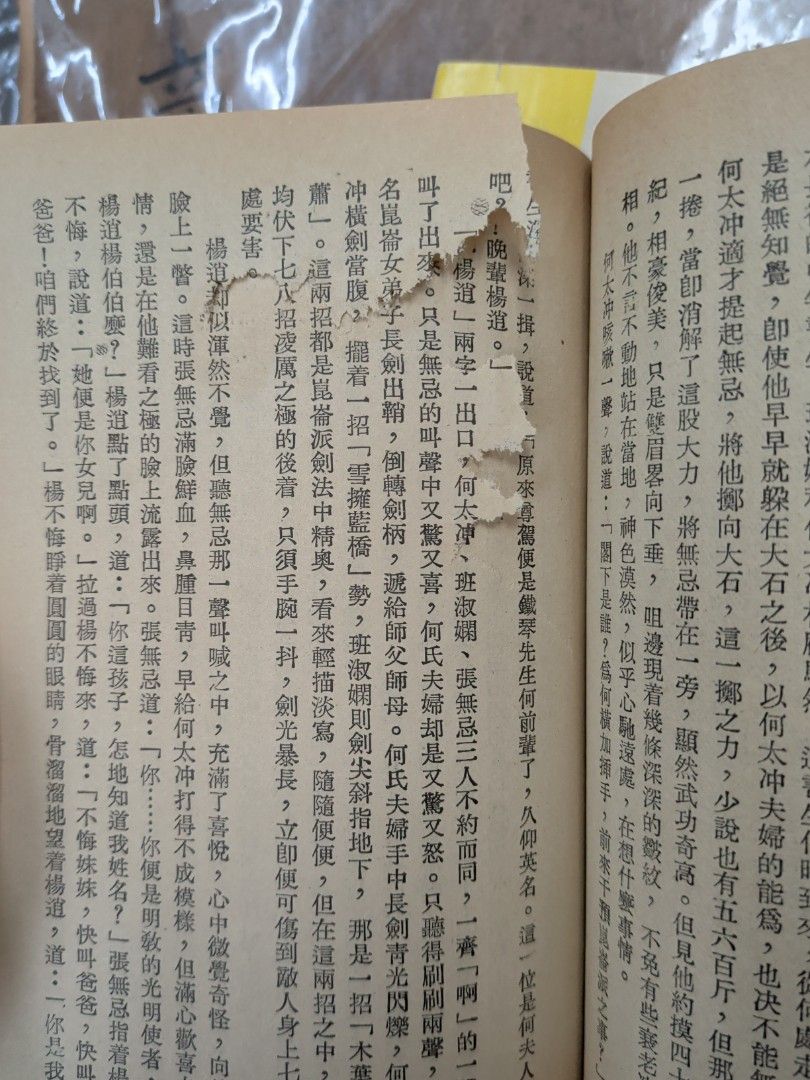 是絕無知覺，即使他早早就躲在大石之後，以何太冲夫婦的能爲，也決不能無
何太冲適才提起無忌，將他擲向大石，這一擲之力，少說也有五六百斤，但那
一捲，當即消解了這股大力，將無忌帶在一旁，顯然武功奇高。但見他約摸四十
紀，相豪俊美，只是雙眉畧向下垂，咀邊現着幾條深深的皺紋，不免有些衰老
相。他不言不動地站在當地，神色漠然，似乎心馳遠處，在想什麼事情。
何太冲咳嗽一聲，說道：「閣下是誰？爲何橫加插手，前來干預崑崙派之事？」
深一揖，說道：「原來尊駕便是鐵琴先生何前輩了，久仰英名。這一位是何夫人
吧？晚輩楊逍。」
「楊逍」兩字一出口，何太冲、班淑嫻、張無忌三人不約而同，一齊「啊」的一
叫了出來。只是無忌的叫聲中又驚又喜，何氏夫婦却是又驚又怒。只聽得刷刷兩聲，
名崑崙女弟子長劍出鞘，倒轉劍柄，遞給師父師母。何氏夫婦手中長劍青光閃爍，何
冲橫劍當腹，擺着一招「雪擁藍橋」勢，班淑嫻則劍尖斜指地下，那是一招「木葉
蕭」。這兩招都是崑崙派劍法中精奧，看來輕描淡寫，隨隨便便，但在這兩招之中，
均伏下七八招淩厲之極的後着，只須手腕一抖，劍光暴長，立卽便可傷到敵人身上七
處要害。
楊逍却似渾然不覺，但聽無忌那一聲叫喊之中，充滿了喜悅，心中微覺奇怪，向
臉上一瞥。這時張無忌滿臉鮮血，鼻腫目青，早給何太冲打得不成模樣，但滿心歡喜
情，還是在他難看之極的臉上流露出來。張無忌道：「你……你便是明敎的光明使者，
楊逍楊伯伯麼？」楊逍點了點頭，道：「你這孩子，怎地知道我姓名？」張無忌指着楊
不悔，說道：「她便是你女兒啊。」拉過楊不悔來，道：「不悔妹妹，快叫爸爸，快叫
爸爸！咱們終於找到了。」楊不悔睜着圓圓的眼睛，骨溜溜地望着楊逍，道：「你是我